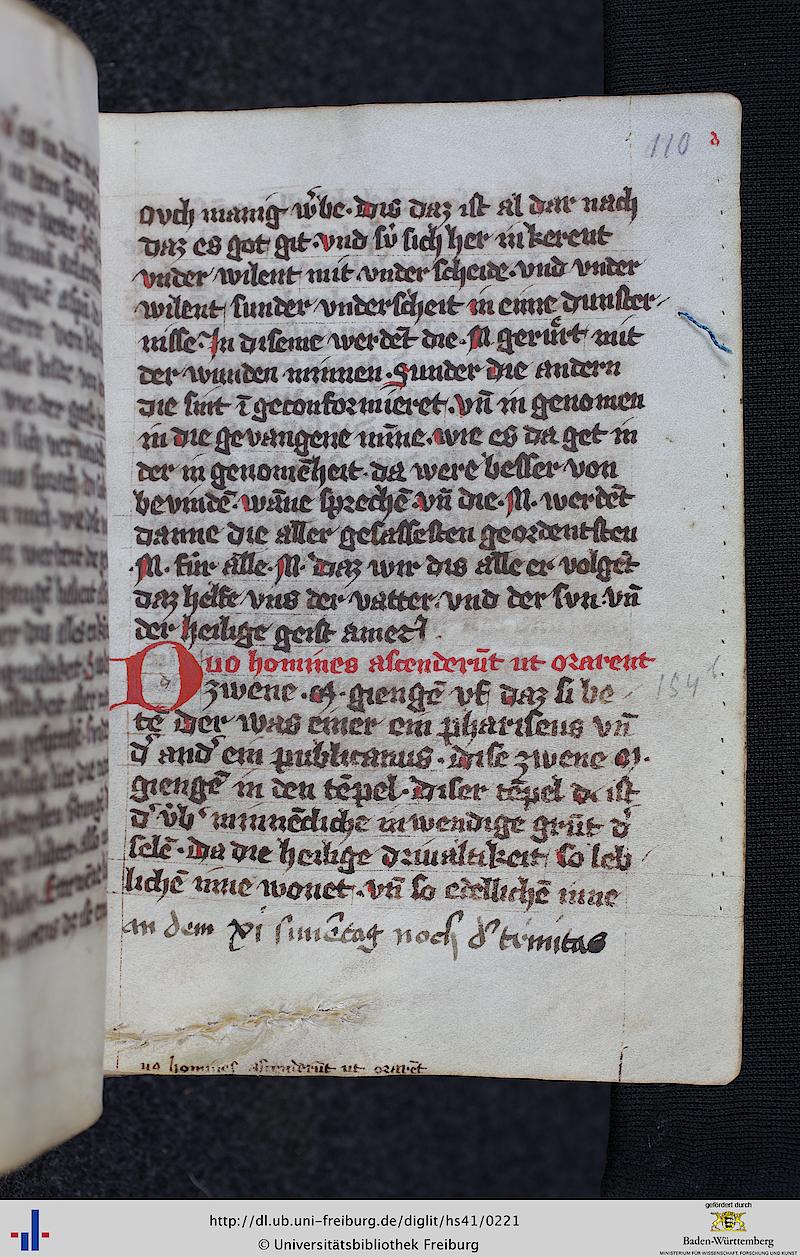 110
ouch manig wͦrbe · Dis daz ist al dar nach
daz es got git · vnd sv́ sich her in kerent
vnder wilent mit vnder scheide · vnd vnder
wilent sunder vnderscheit in eine dunster
nisse · In diseme werdēt die · M gerūrt mit
der wunden minnen · Sunder die andern
die sint ī geconformieret · vn̄ in genomen
in die gevangene mīne · wie es da get in
der in genomēheit · da were besser von
bevindē · wāne sprechē · vn̄ die · M · werdēt
danne die aller gelassesten geordentsten
· M · fúr alle · M · Daz wir dis alle er volgēt
daz helfe vns der vatter · vnd der svn · vn̄
der heilige geist amen
Duo homines ascenderūt ut orarent
zwene · M · giengē vf daz si be
154b
te der was einer ein phariseus vn̄
d' and' ein publicanus · Dise zwene M ·
giengē in den tēpel · Diser tēpel dc ist
d' v́b' minnēcliche inwendige grūt d'
selē · Da die heilige drivaltikeit so leb
lichē inne wonet · vn̄ so edellichē inne
an dem xi sunētag noch d' trinitas
uo homines ascenderūt ut orarēt
http://dl.ub.uni-freiburg.de/diglit/hs41/0221
© Universitätsbibliothek Freiburg
gefördert durch
Baden-Württemberg
MINISTERIUM FÜR WISSENSCHAFT, FORSCHUNG UND KUNST